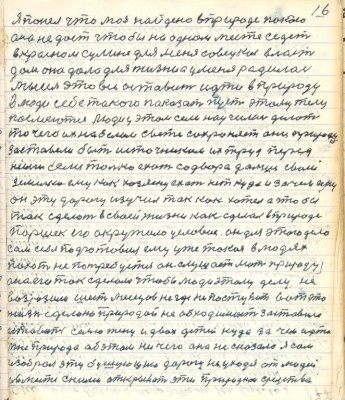 16
Я понял что моя найдено в природе покаю
она не даст чтобы на одном месте седет
в красном сулине для меня советская власт
дом она дала для жизни а у меня радилас
мысля это вы оставит идти в природу
в люди себе такого показат пуст этому телу
люди у этом сем научилис делат
то чего их на белом свете сохроняет они природу
заставили быт источником их труд перед
ними толко скот со двора
ему как хозяену скот нет куда и зачем
он эту дорогу изучил так как хотел а то бы
так сделат в своей жизни как сделал в природе
Паршек его окружило условие. он для этого дело
сам себя подготовил ему уже такоя в людях
не потребуется он слушает мат природу
она его так сделала чтобы людям этому делу не
возрозили шест месецов негде ни поступит вот это
жизн сделано природой не обходимост заставило
оставит сваю жену и двах детей куда за чем идти
мне природа об этом ни чего она не сказала я сам
избрал эту будующию дорогу их уходя от людей
в места с ними открыват эти природное средства